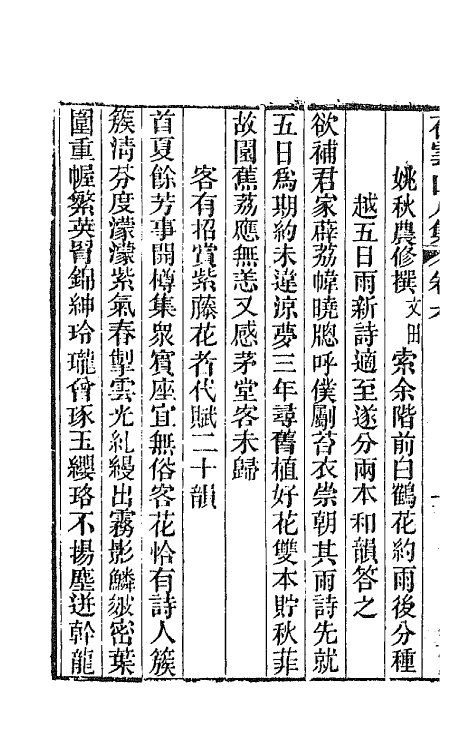 姚秋農修撰文田索余階前白鶴花約雨後分種
越五日雨新詩適至遂分兩本和韻答之
欲補君家薜荔幃曉牕呼僕劚苔衣崇朝其雨詩先就
五日爲期約未違涼夢三年尋舊植好花雙本貯秋菲
故園蕉荔應無恙又感茅堂客未歸
客有招賞紫藤花者代賦二十韻
首夏餘芳事開樽集衆賓座宜無俗客花恰有詩人簇
簇清芬度濛濛紫氣春掣雲光糺縵出霧影鱗皴密葉
圍重幄繁英罥錦紳玲瓏曾琢玉纓珞不揚塵迸幹龍